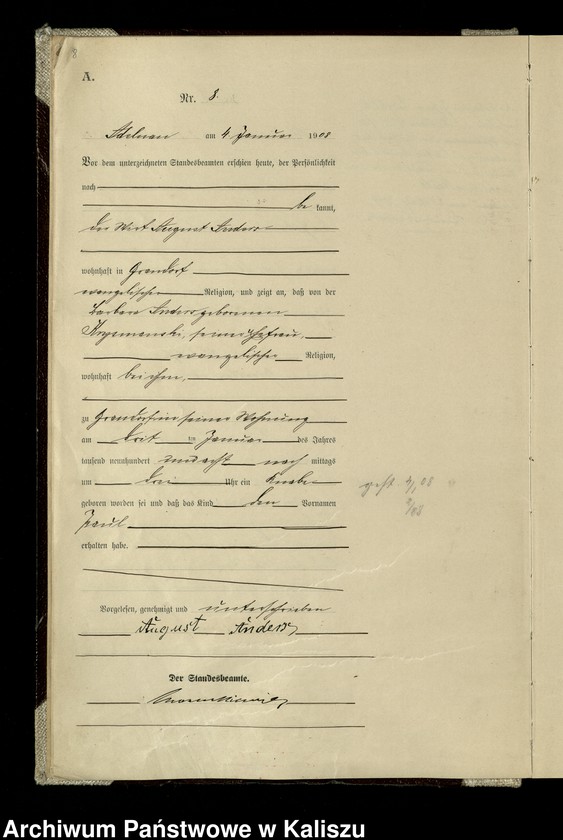 8
A.
Nr. 8.
Adelnau am 4. Januar 1908
Vor dem unterzeichneten Standesbeamten erschien heute, der Persönlichkeit
nach
be kannt,
der Wirt August Anders
wohnhaft in Grandorf
evangelischer Religion, und zeigt an, daß von der
Barbara Anders geborenen
seiner Ehefrau,
evangelischer Religion,
wohnhaft bei ihm,
zu Grandorf in seiner Wohnung
am Januar des Jahres
tausend neunhundert und acht nach mittags
um drei Uhr ein Knabe
geboren worden sei und daß das Kind den Vornamen
Paul
erhalten habe.
Vorgelesen, genehmigt und unterschrieben
August Anders
Der Standesbeamte.
Archiwum Państwowe w Kaliszu